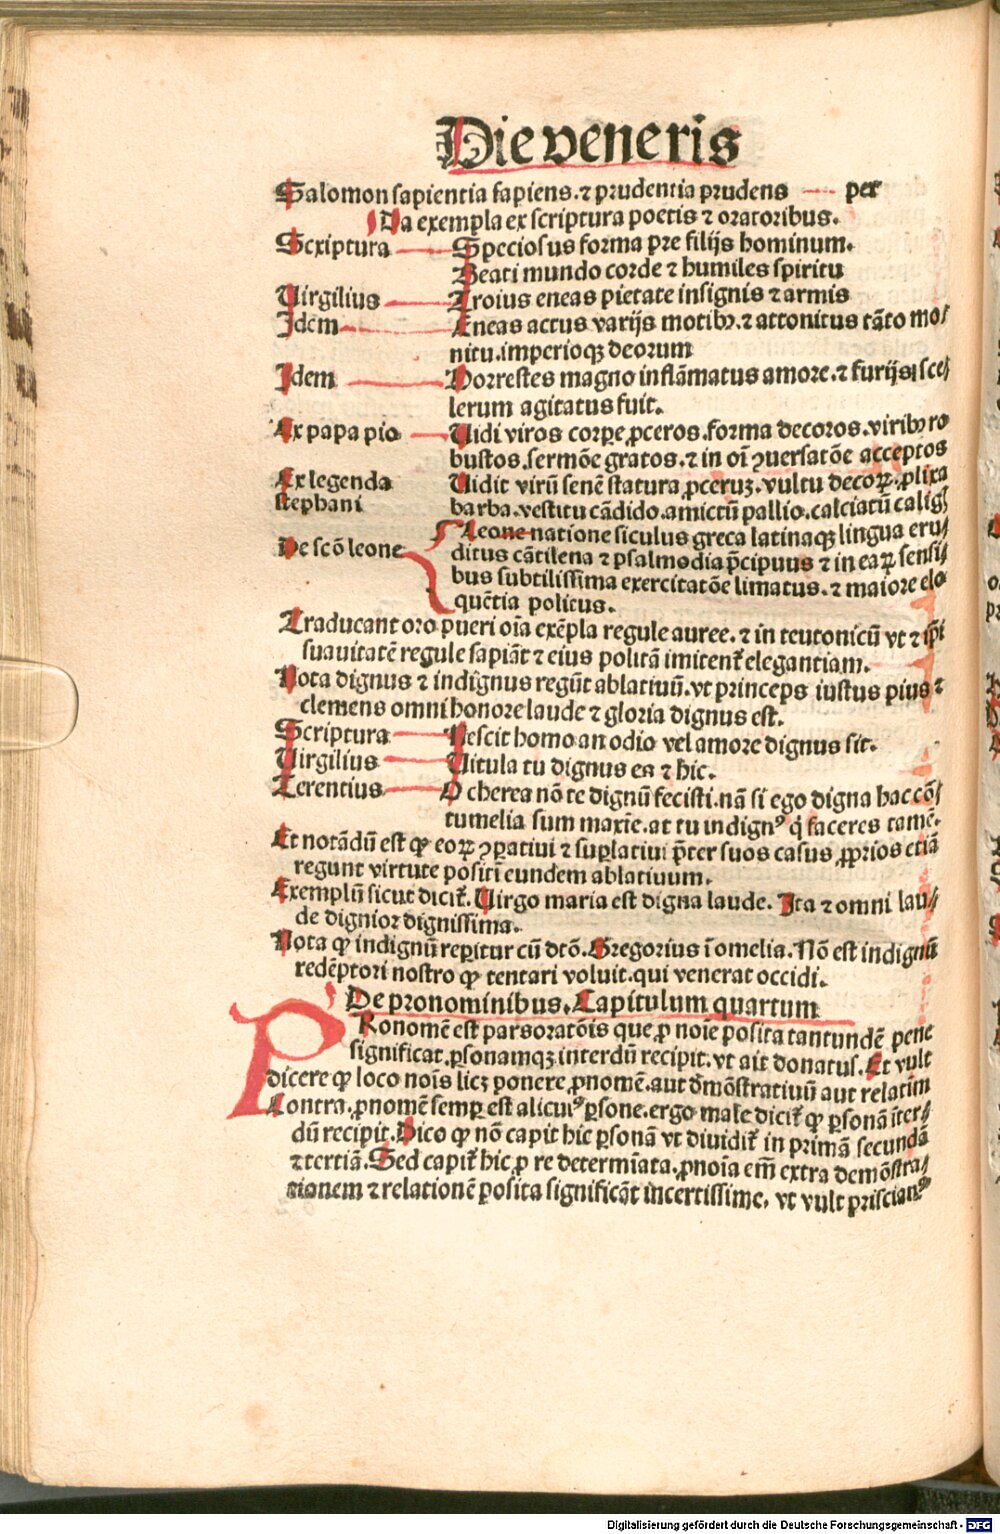 Die veneris
Salomon sapientia sapiens. ⁊ prudentia prudens per
Da exempla ex scriptura poetis ⁊ oratoribus.
Scriptura Speciosus forma pre filijs hominum.
Beati mundo corde ⁊ humiles spiritu
Virgilius Troius eneas pietate insignis ⁊ armis
Idem Eneas actus varijs motibꝰ. ⁊ attonitus tãto mo/
nitu. imperioqꝫ deorum
Idem Horrestes magno inflãmatus amore. ⁊ furijs sce/
lerum agitatus fuit.
Ex papa pio Vidi viros corpe ꝓceros. forma decoros. viribꝰ ro
bustos. sermõe gratos. ⁊ in oĩ ꝯuersatõe acceptos
Ex legenda Vidit virũ senẽ statura ꝓceruꝫ. vultu decoꝝ. ꝓlixa
stephani barba. vestitu cãdido. amictũ pallio. calciatũ calig/
De scõ leone Leone natione siculus greca latinaqꝫ lingua eru/
ditus cãtilena ⁊ psalmodia p̃cipuus ⁊ in eaꝝ sensi/
bus subtilissima exercitatõe limatus. ⁊ maiore elo
quẽtia politus.
Traducant oro pueri oĩa exẽpla regule auree. ⁊ in teutonicũ vt ⁊ ip̃i
suauitatẽ regule sapiãt ⁊ eius politã imitent᷑ elegantiam.
Nota dignus ⁊ indignus regũt ablatiuũ. vt princeps iustus pius ⁊
clemens omni honore laude ⁊ gloria dignus est.
Scriptura Nescit homo an odio vel amore dignus sit.
Virgilius Vitula tu dignus es ⁊ hic.
Terentius O cherea nõ te dignũ fecisti. nã si ego digna hac cõ/
tumelia sum maxĩe. at tu indignꝰ q̃ faceres tamẽ.
Et notãdũ est ꝙ eoꝝ ꝯpatiui ⁊ suplatiui p̃ter suos casus ꝓprios etiã
regunt virtute positi eundem ablatiuum.
Exemplũ sicut dicit᷑. Virgo maria est digna laude. Ita ⁊ omni lau/
de dignior dignissima.
Nota ꝙ indignũ reꝑitur cũ dtõ. Gregorius ĩ omelia. Nõ est indignũ
redẽptori nostro ꝙ tentari voluit. qui venerat occidi.
De pronominibus. Capitulum quartum
PRonomẽ est pars oratõis que ꝓ noĩe posita tantundẽ pene
significat. ꝑsonamqꝫ interdũ recipit. vt ait donatus. Et vult
dicere ꝙ loco noĩs licꝫ ponere ꝓnomẽ. aut dmõstratiuũ aut relatiũ
Contra. ꝓnomẽ semꝑ est alicuiꝰ ꝑsone. ergo male dicit᷑ ꝙ ꝑsonã ĩter/
dũ recipit. Dico ꝙ nõ capit hic ꝑsonã vt diuidit᷑ in primã secundã
⁊ tertiã. Sed capit᷑ hic ꝓ re determĩata. ꝓnoĩa em̃ extra demõstra/
tionem ⁊ relationẽ posita significãt incertissime, vt vult priscianꝰ
Digitalisierung gefördert durch die Deutsche Forschungsgemeinschaft - DFG